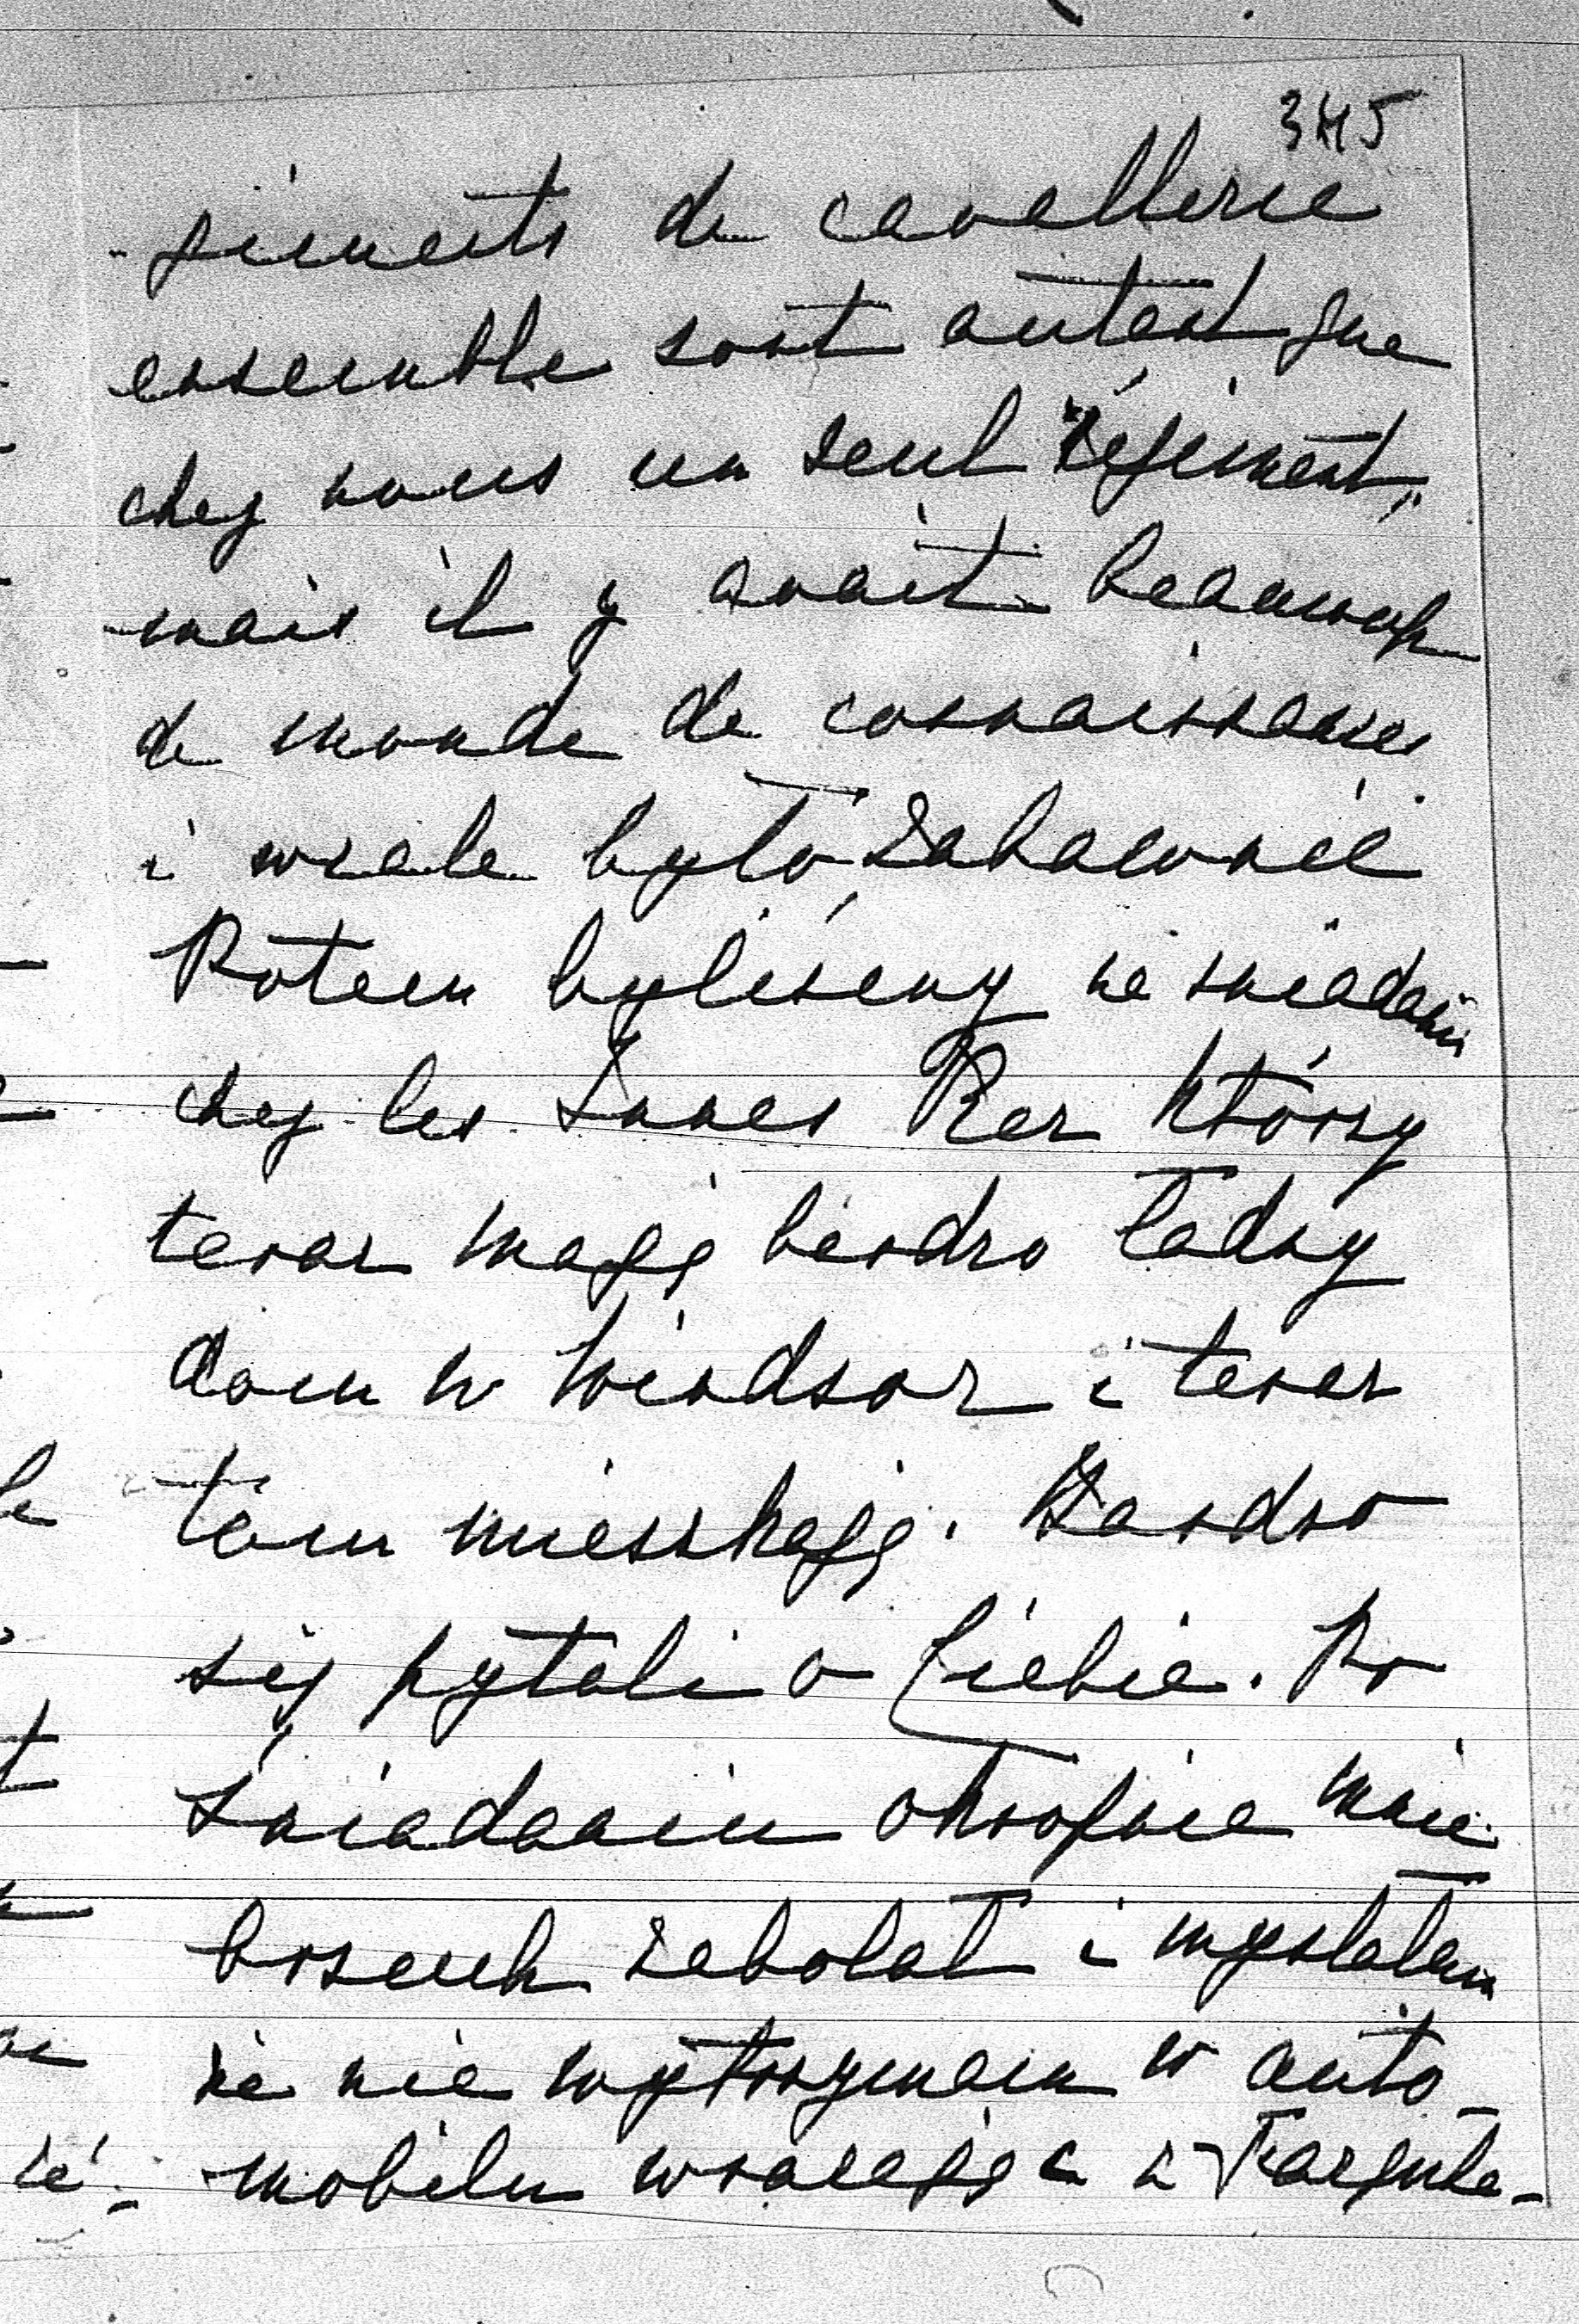 345
giments de cavallerie
ensemble sont autant que
chez nous un seul régiment,
mais il y avait beaucoup
de monde de connaissances
i wcale było zabawnie
Potem byliśmy na śniadaniu
chez les Innes Ker którzy
teraz mają bardzo ładny
dom w Windsor i teraz
tam mieszkają. Bardzo
się pytali o Ciebie. Po
śniadaniu okropnie mnie
brzuch zabolał i myślałem
że nie wytrzymam w auto
mobilu wracając z